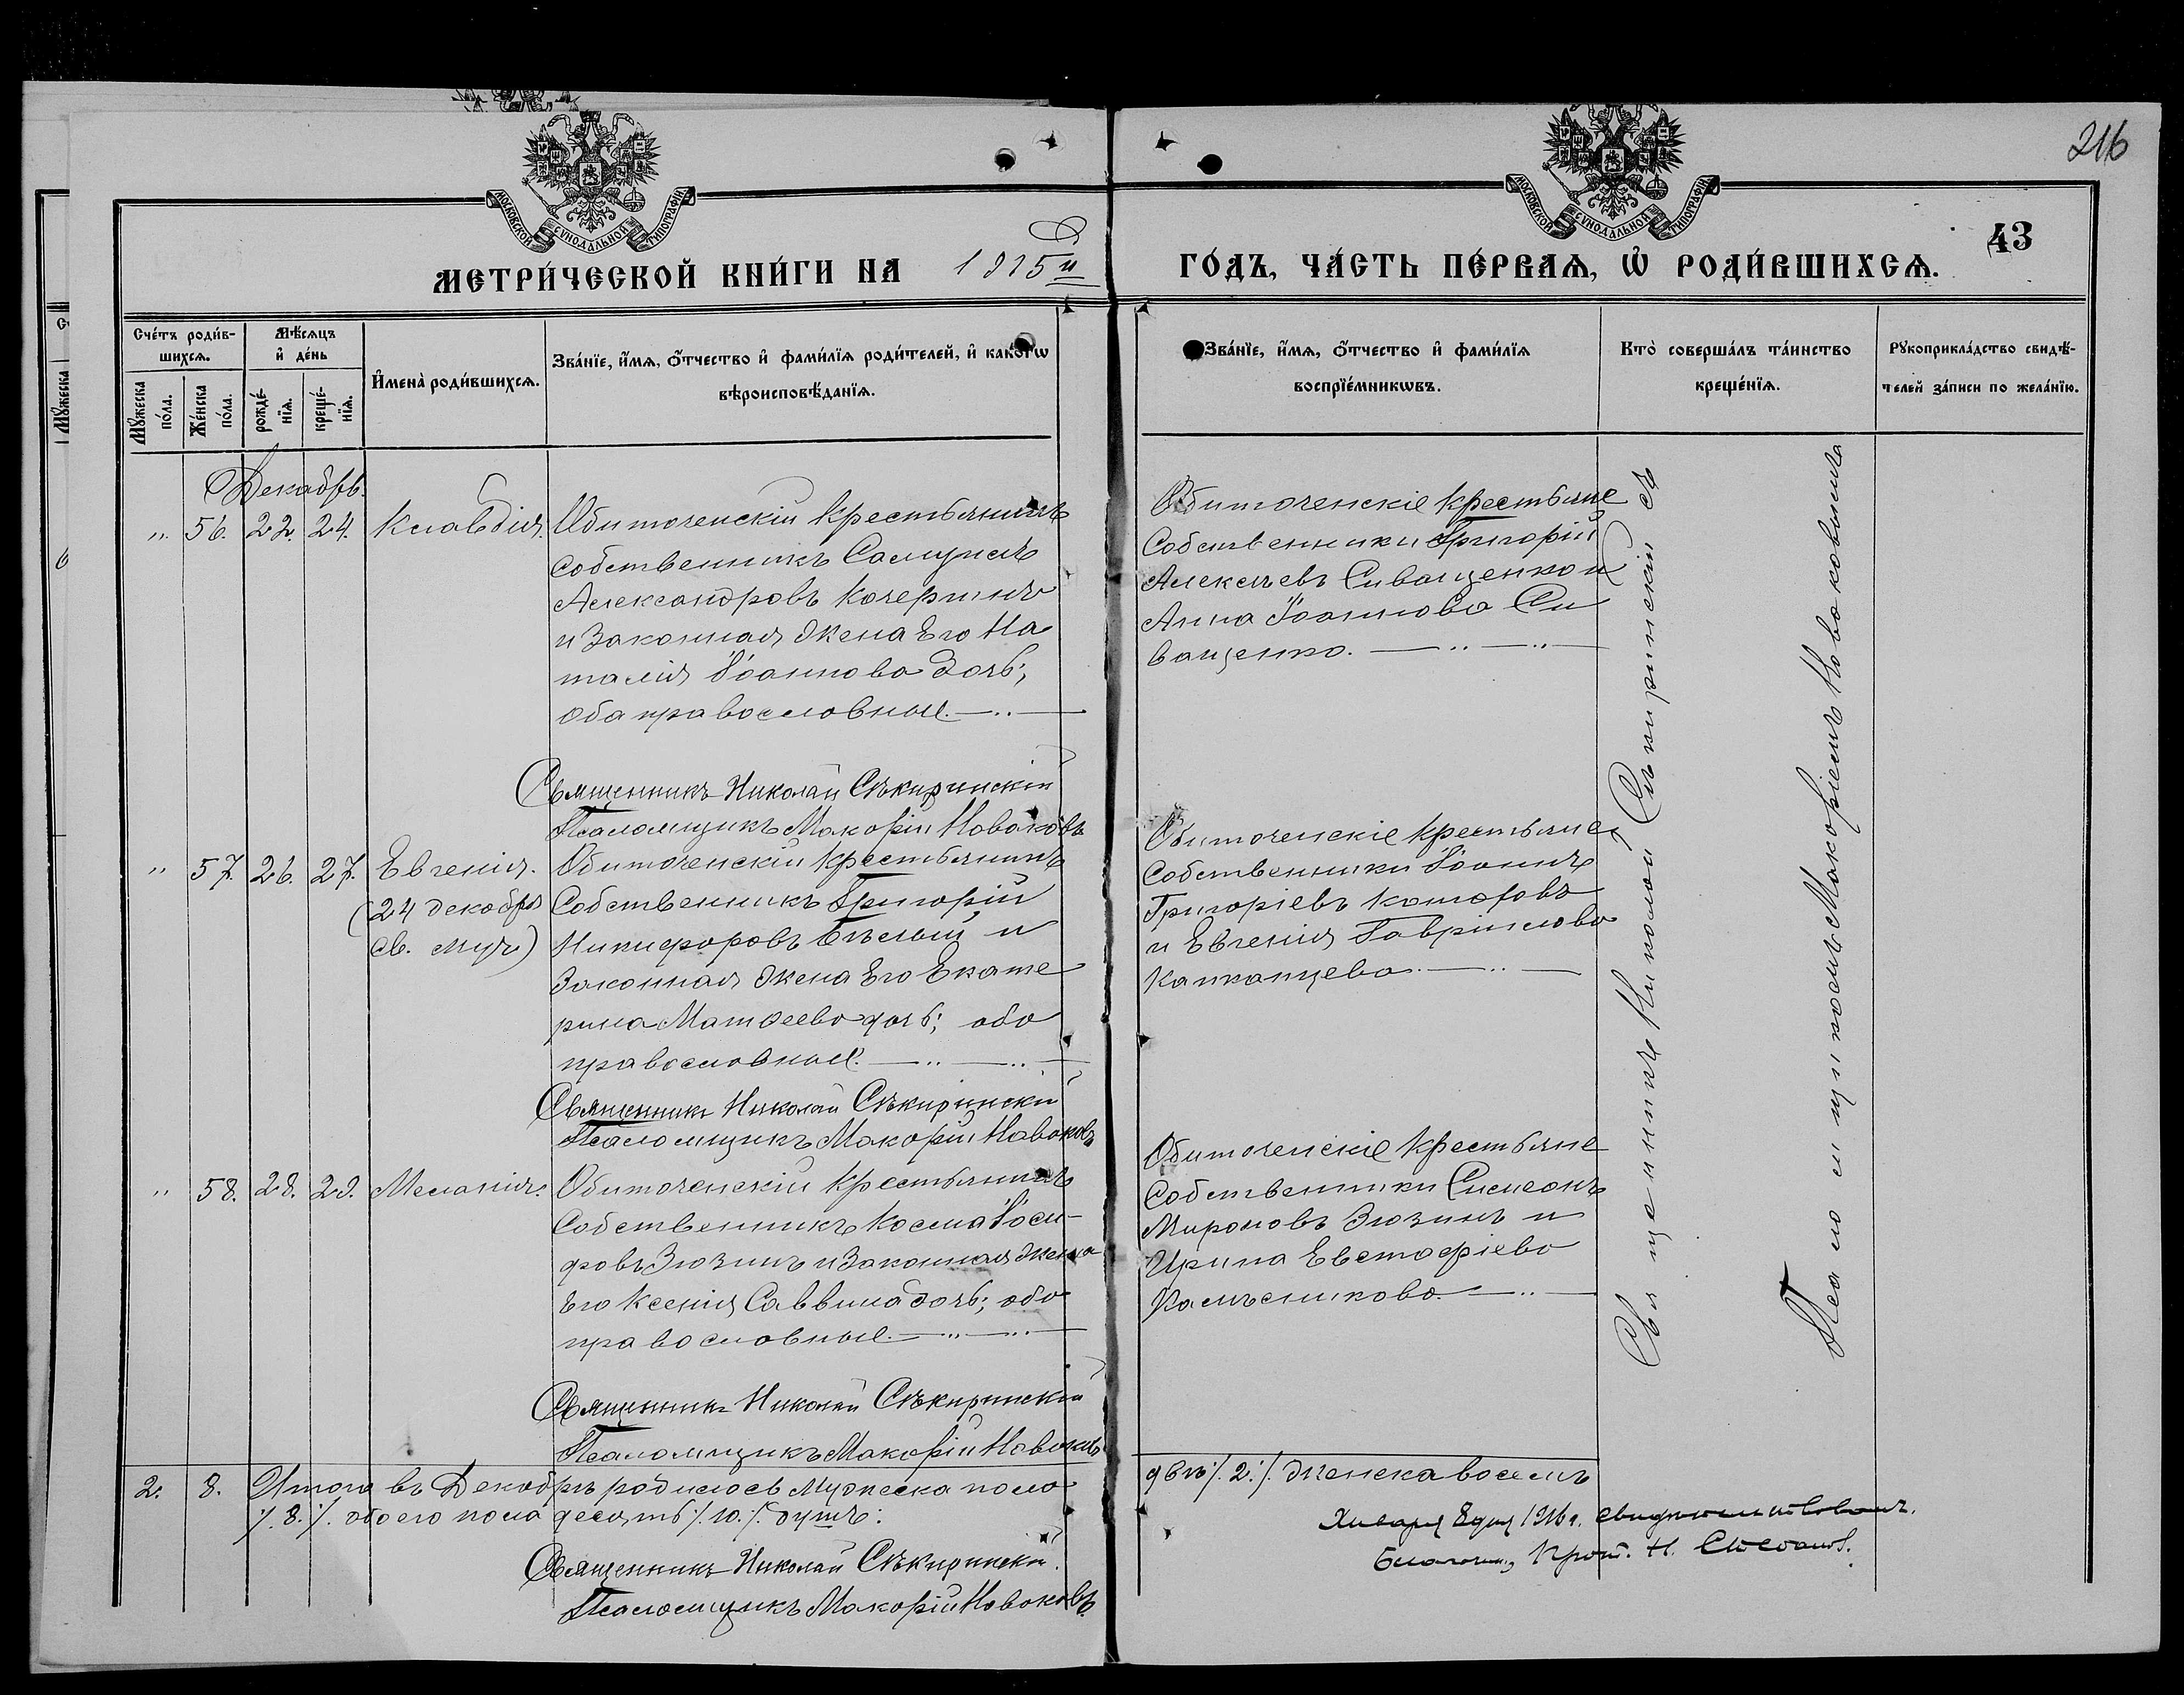 216
43
МЕТРИ́ЧЕСКОЙ КНИ́ГИ НА 1915й ГО́ДЪ, ЧА́СТЬ ПЕ́РВАѦ, Ѡ҆ РОДИ́ВШИХСѦ.
Сче́тъ роди́в-
шихсѧ.
Мѣ́сѧцъ
и҆ де́нь
Мꙋ́жеска
по́ла.
Же́нска
по́ла.
рожде́-
нїѧ.
креще́-
нїѧ.
И҆мена̀ роди́вшихсѧ.
Зва́нїе, и҆́мѧ, ѻ҆́тчество и҆ фами́лїѧ роди́телей, и҆ како́гѡ
вѣроисповѣ́данїѧ.
Зва́нїе, и҆́мѧ, ѻ҆́тчество и҆ фами́лїѧ
воспрїе́мникѡвъ.
Кто̀ соверша́лъ та́инство
креще́нїѧ.
Рꙋкоприкла́дство свидѣ́-
телей за́писи по жела́нїю.
Декабрь.
" 56. 22. 24. Клавдія. Обиточенскій крестьянинъ
собственникъ Самуилъ
Александровъ Кочергинъ
и законная жена Его На
талія Іоаннова дочь;
оба православные.
Священникъ Николай Сѣкиринскій
Псаломщикъ Макарій Новаковъ
Обиточенскіе крестьяне
Собственники Григорій
Алексѣевъ Сиващенко и
Анна Іоаннова Си
ващенко.
" 57. 26. 27. Евгенія.
(24 декабря
св. муч.)
Обиточенскій крестьянинъ
Собственникъ Григорій
Никифоровъ Бѣлый и
Законная жена Его Екате
рина Матѳеева дочь; оба
православные.
Священникъ Николай Сѣкиринскій
Псаломщикъ Макарій Новаковъ
Обиточенскіе крестьяне
Собственники Іоаннъ
Григоріевъ
и Евгенія Гавріилова
Капканцева.
" 58. 28. 29. Меланія.
Обиточенскій крестьянинъ
Собственникъ Косма Іоси-
фовъ Зюзинъ и Законная жена
Его Ксенія Саввина дочь; оба
православные.
Священникъ Николай Сѣкиринскій
Псаломщикъ Макарій Новаковъ
Обиточенскіе крестьяне
Собственники Симеонъ
Мироновъ Зюзинъ и
Ирина Евстафіева
Колесникова.
Священникъ Николай Сѣкиринскій съ
Псаломщикомъ Макаріемъ Новаковымъ
2. 8. Итого въ Декабрѣ родилось Мужеска пола двѣ ·/. 2 ·/. женска восемь
·/. 8 ·/. обоего пола десять ·/. 10 ·/. душъ:
Священникъ Николай Сѣкиринскій.
Псаломщикъ Макарій Новаковъ.
Января 1916 г. свидѣтельствовалъ.
Благочин., Прот. Н.